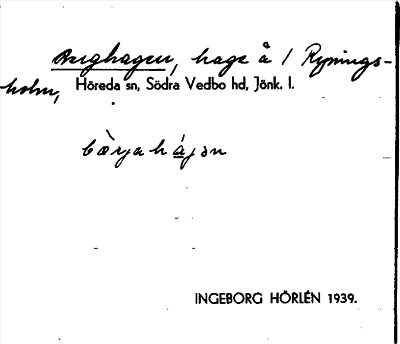 Berghagen, hage å 1 Rynings-
holm, Höreda sn, Södra Vedbo hd, Jönk. l.
bærjahájən
INGEBORG HÖRLÉN 1939.